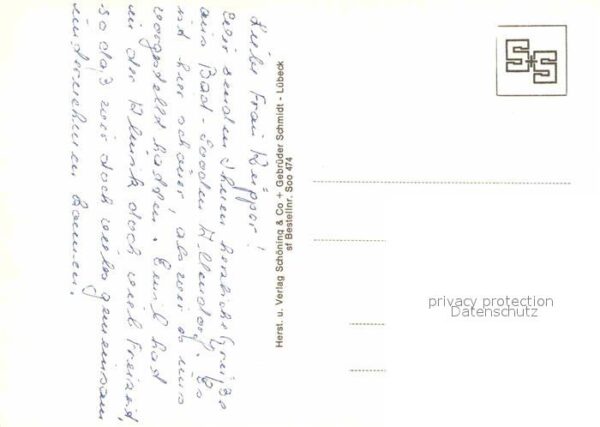 Liebe Frau Küpper!
Wir senden Ihnen herzliche Grüße
aus Bad-Sooden Allendorf. Es
ist hier schöner, als wir es uns
vorgestellt hatten. Emil hat
in der Klinik doch viel Freizeit,
so daß wir doch vieles gemeinsam
unternehmen können.
Herst. u. Verlag Schöning & Co + Gebrüder Schmidt - Lübeck
sf Bestellnr. Soo 474
S+S
privacy protection
Datenschutz